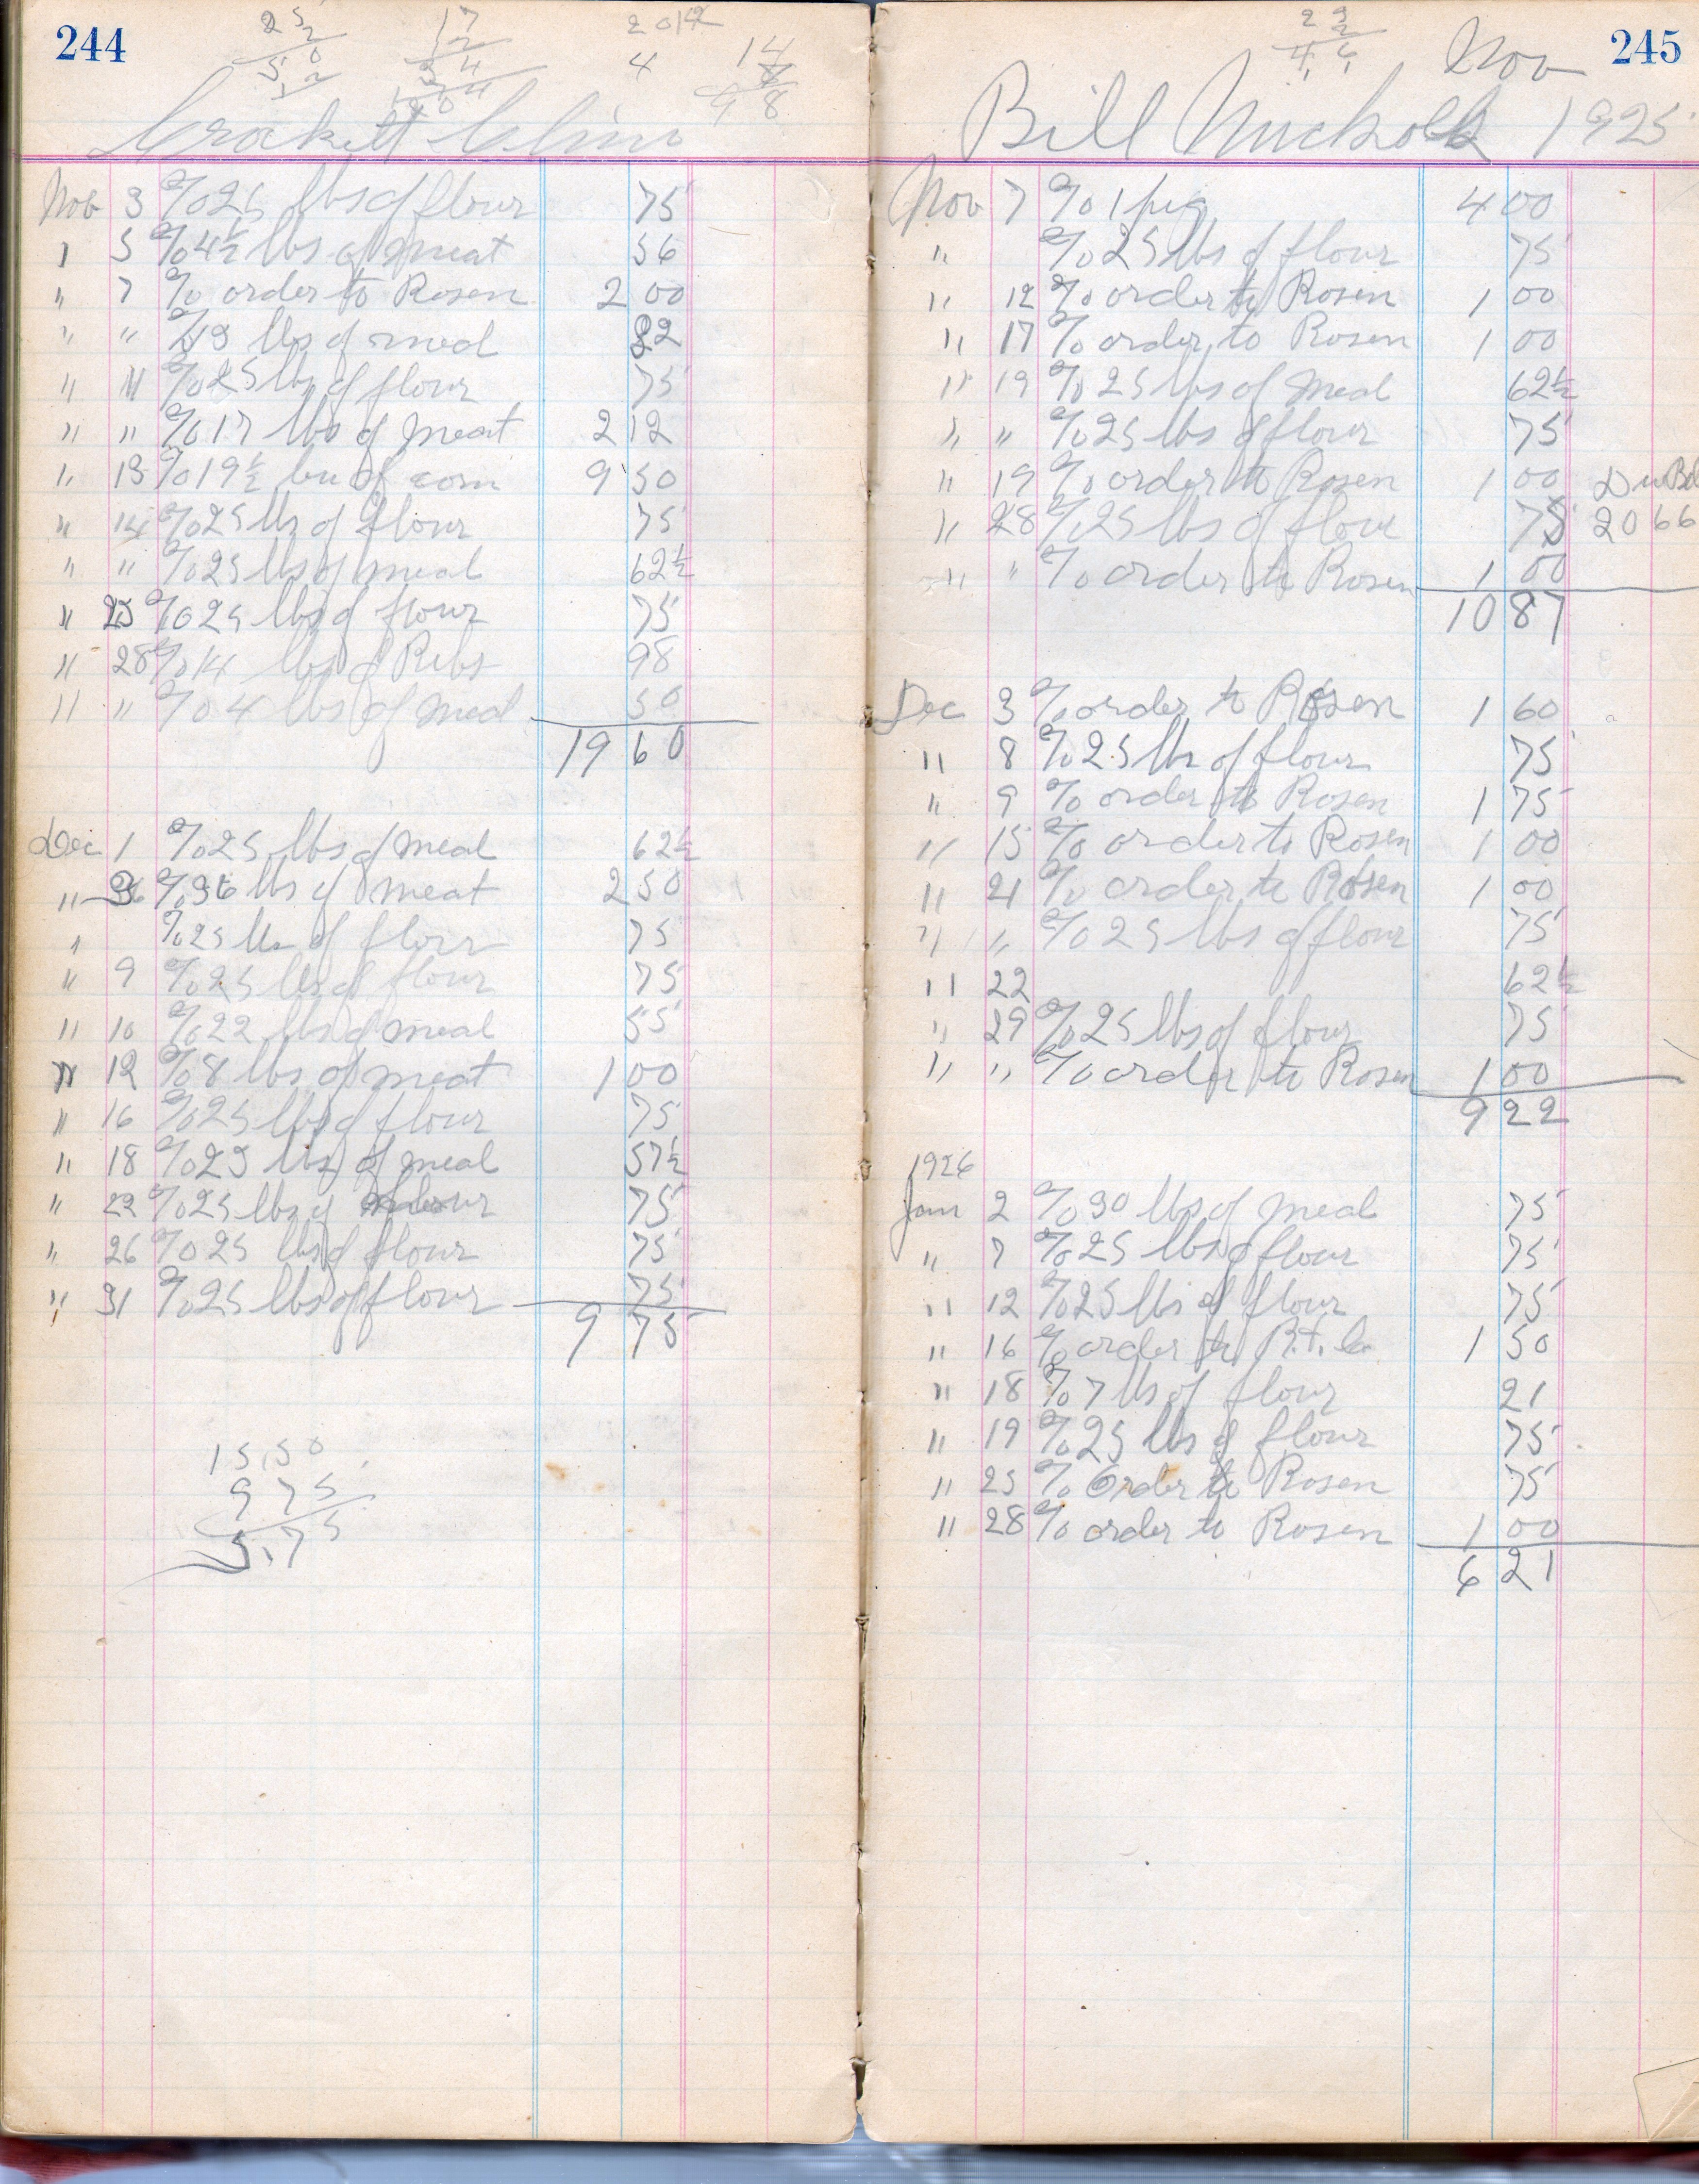 244
25
2
50
2
17
2
34
4
2012
4
14
7
98
Crockett Cline
Nov 3 % 25 lbs of flour 75
" 5 % 4½ lbs of meat 56
" 7 % order to Rosen 2 00
" " % lbs of meal 82
" 11 % 25 lbs of flour 75
" " % 17 lbs of meat 2 12
" 13 % 19½ bu of corn 9 50
" 14 % 25 lbs of flour 75
" " % 25 lbs of meal 62½
" 25 % 25 lbs of flour 75
" 28 % 14 lbs of Ribs 98
" " % 4 lbs of meal 50
19 60
Dec 1 % 25 lbs of meal 62½
" % 36 lbs of meat 2 50
" % 25 lbs of flour 75
" 9 % 25 lbs of flour 75
" 10 % 22 lbs of meal 55
" 12 % 8 lbs of meat 1 00
" 16 % 25 lbs of flour 75
" 18 % 23 lbs of meal 57½
" 22 % 25 lbs of flour 75
" 26 % 25 lbs of flour 75
" 31 % 25 lbs of flour 75
9 75
15.50
9 75
5.75
245
23
2
46
Nov
Bill Nuckolls 1925
Nov 7 % 1 pig 4 00
" % 25 lbs of flour 75
" 12 % order to Rosen 1 00
" 17 % order to Rosen 1 00
" 19 % 25 lbs of meal 62½
" " % 25 lbs of flour 75
" 19 % order to Rosen 1 00 Due Bal
" 28 % 25 lbs of flour 75 20 66
" " % order to Rosen 1 00
10 87
Dec 3 % order to Rosen 1 60
" 8 % 25 lbs of flour 75
" 9 % order to Rosen 1 75
" 15 % order to Rosen 1 00
" 21 % order to Rosen 1 00
" " % 25 lbs of flour 75
" 22 62½
" 29 % 25 lbs of flour 75
" " % order to Rosen 1 00
9 22
1926
Jan 2 % 30 lbs of meal 75
" 7 % 25 lbs of flour 75
" 12 % 25 lbs of flour 75
" 16 % order to R.t. Co 1 50
" 18 % 7 lbs of flour 21
" 19 % 25 lbs of flour 75
" 25 % Order to Rosen 75
" 28 % order to Rosen 1 00
6 21